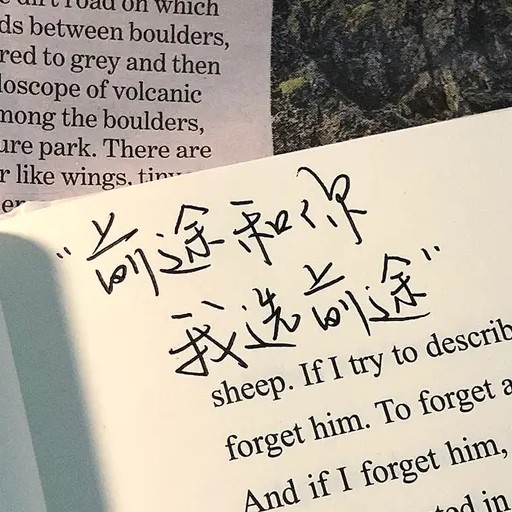 dirt road on which
ds between boulders,
red to grey and then
loscope of volcanic
mong the boulders,
ure park. There are
r like wings, tiny
er
“前途和你
我选前途”
sheep. If I try to describ
forget him. To forget a
And if I forget him,
ted in